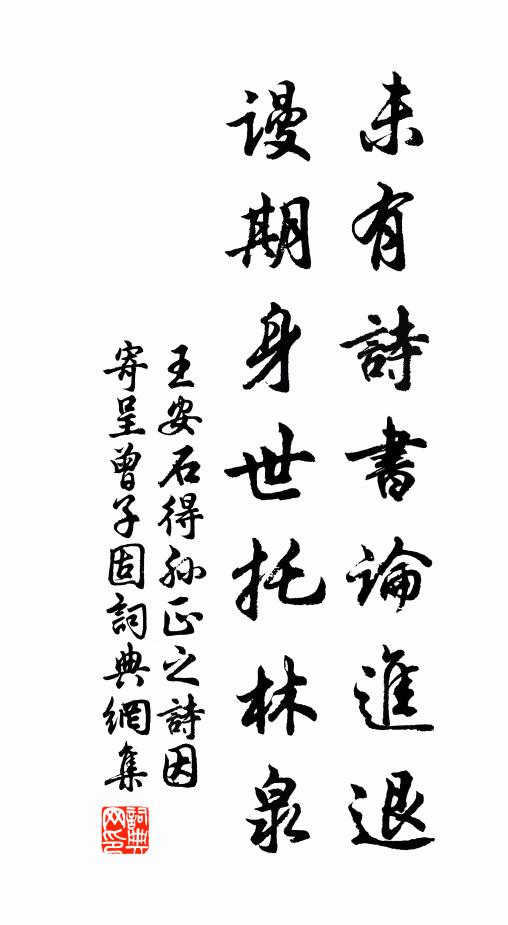 未有詩書論進退
謾期身世托林泉
王安石得孙正之詩因
寄呈曾子固詞典網集
詞典
网印